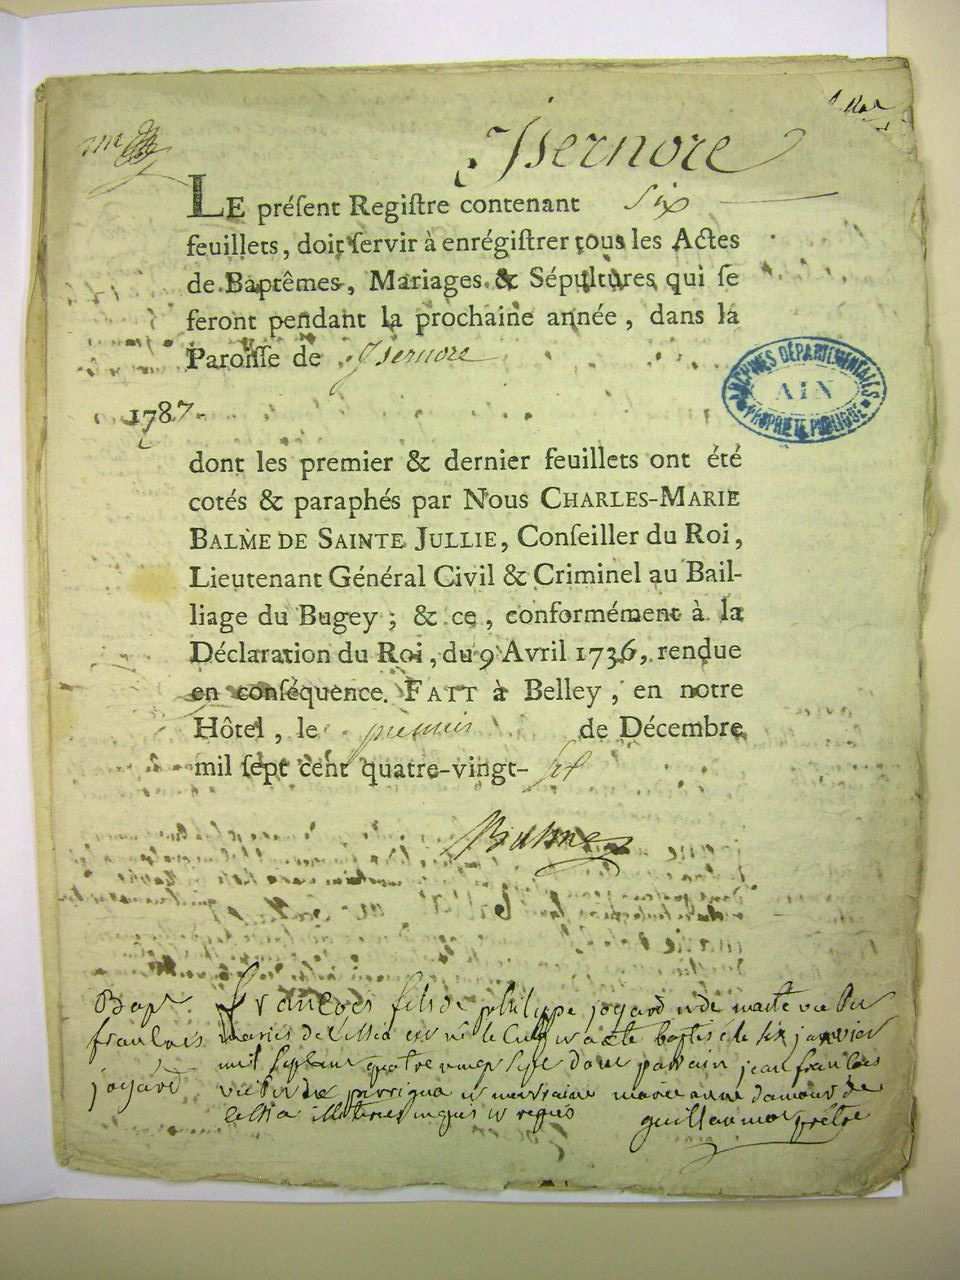 Isernore
LE préſent Regiſtre contenant six
feuillets, doit ſervir à enrégiſtrer tous les Actes
de Baptêmes, Mariages & Sépultures qui ſe
feront pendant la prochaine année, dans la
Paroiſſe de Isernore
ARCHIVES DÉPARTEMENTALES
AIN
PROPRIÉTÉ PUBLIQUE
1787
dont les premier & dernier feuillets ont été
cotés & paraphés par Nous CHARLES-MARIE
BALME DE SAINTE JULLIE, Conſeiller du Roi,
Lieutenant Général Civil & Criminel au Bail-
liage du Bugey; & ce, conformément à la
Déclaration du Roi, du 9 Avril 1736, rendue
en conſéquence. FAIT à Belley, en notre
Hôtel, le premier de Décembre
mil ſept cent quatre-vingt-
Balme
Bap
francois
joyard
francois fils de philippe joyard et de
mariés de né le baptisé le six janvier
mil parrain jean francois
et marraine marie anne damour de
illiteres requis
guillaumot prêtre